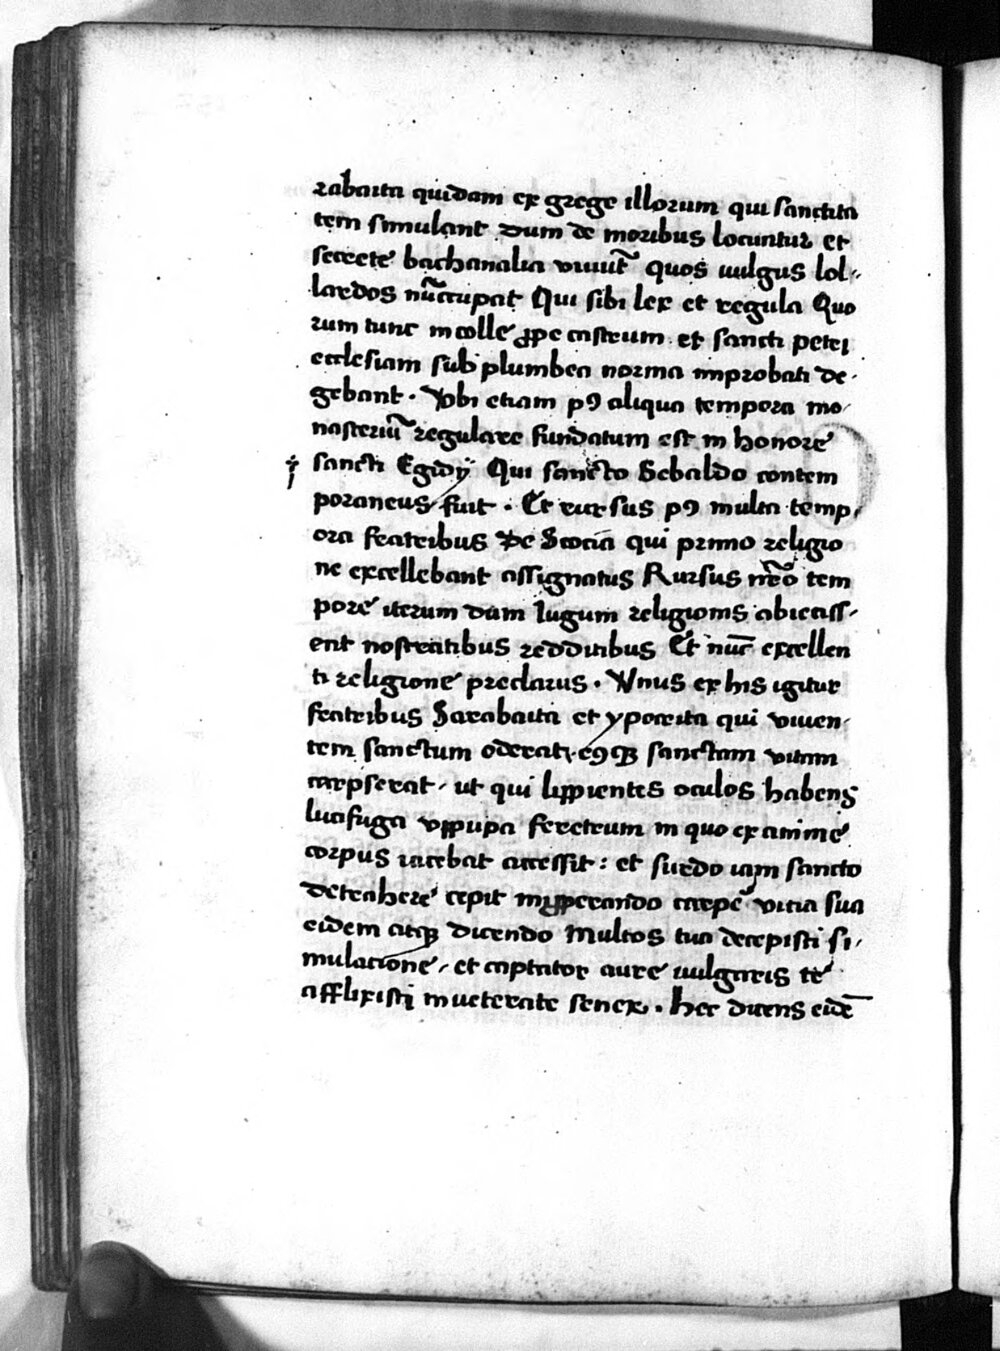 rabaita quidam ex grege illorum qui sanctita
tem simulant dum de moribus locuntur et
secrete bachanalia viuūt quos uulgus lol-
lardos nūcupat Qui sibi lex et regula Quo
rum tunc in colle ꝓpe castrum et sancti petri
ecclesiam sub plumbea norma improbati de-
gebant . Vbi etiam pꝯ aliqua tempora mo-
nasteriū regulare fundatum est in honore
sancti Egidÿ Qui sancto Sebaldo contem
poraneus fuit . Et rursus pꝯ multa temp-
ora fratribus de Scocia qui primo religio
ne excellebant assignatus Rursus nrō tem
pore iterum dum Iugum religionis abicass-
ent nostratibus redditibus Et nūc excellen
ti religione preclarus . Vnus ex his igitur
fratribus Sarabaita et ypocrita qui viuen-
tem sanctum oderat, eꝯqꝫ sanctam vitam
carpserat, ut qui lippientes oculos habens
lucifuga vppupa feretrum in quo exanime
corpus iacebat accessit : et surdo iam sancto
detrahere cepit carpē vitia sua
eidem atqꝫ dicendo Multos tua decepisti si-
mulacione, et captator aure uulgaris te
afflixisti inueterate senex . hec dicens eidē